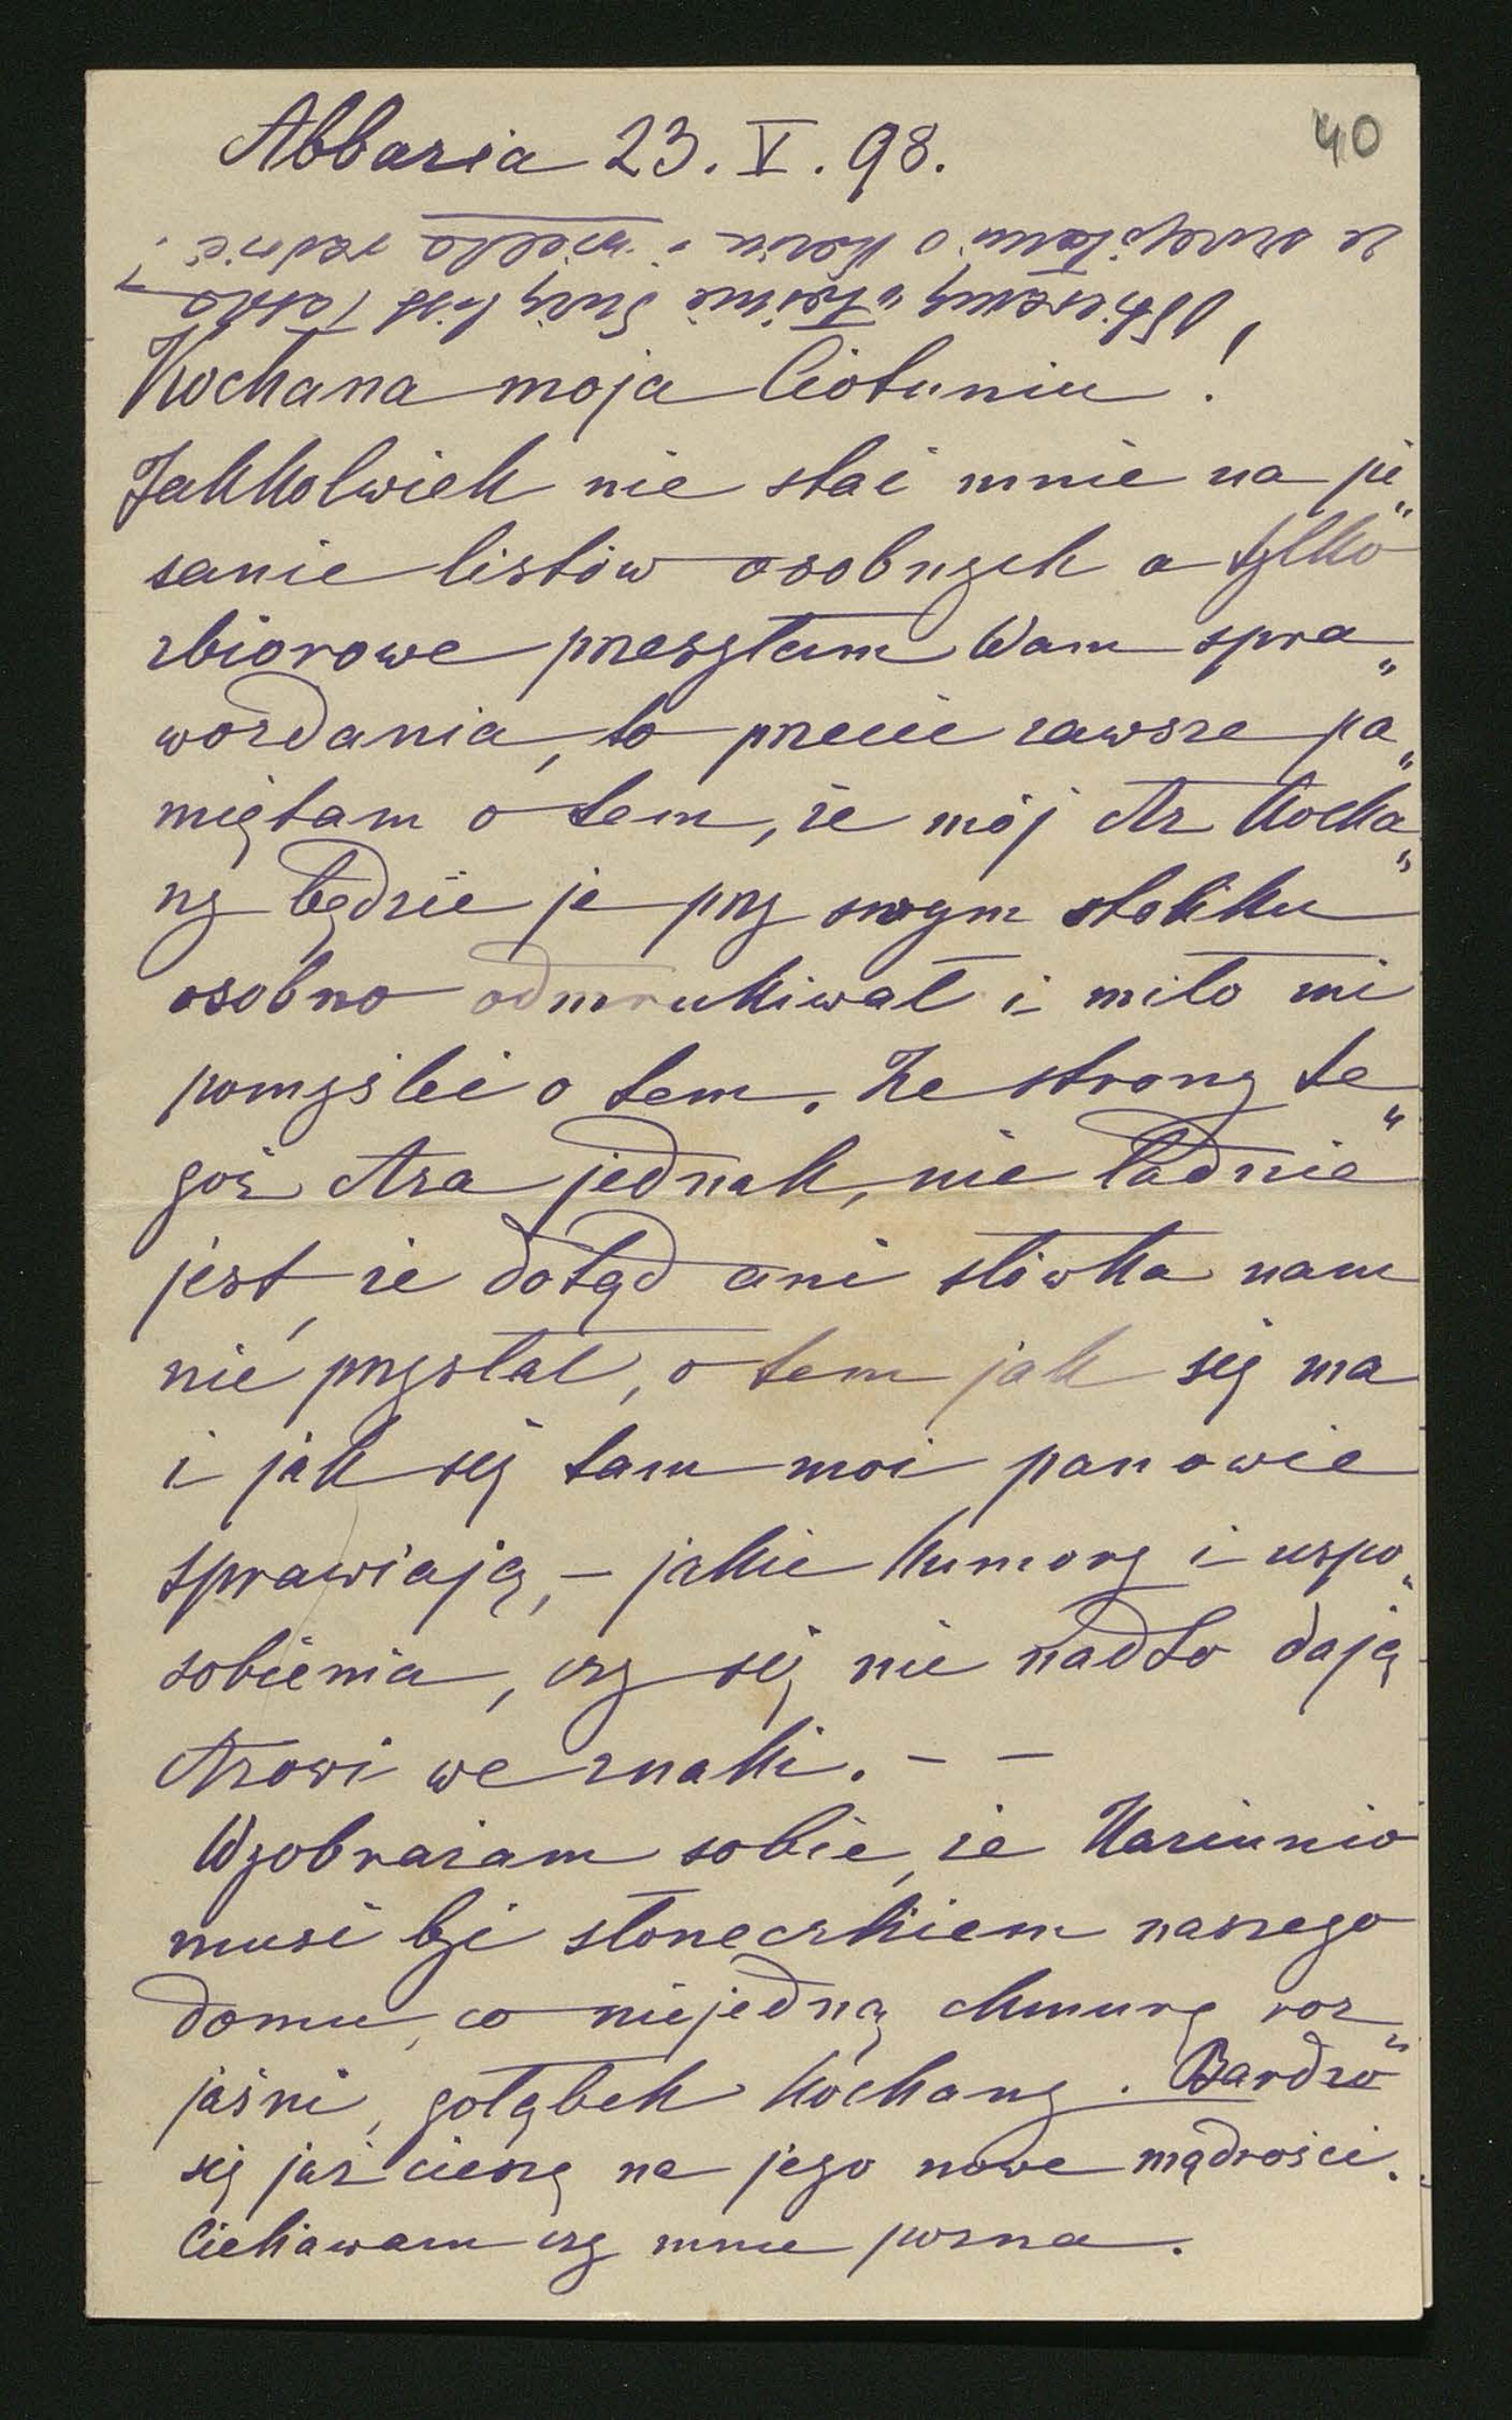 40
Abbazia 23. V. 98.
Kochana moja Ciotuniu!
Jakkolwiek nie stać mnie na pi„
sanie listów osobnych a tylko
zbiorowe przesyłam Wam spra„
wozdania, to przecie zawsze pa„
miętam o tem, że mój Az kocha„
ny będzie je przy swoym stoliku
osobno odmrukiwał i miło mi
pomyśleć o tem. Ze strony te„
goż Aza jednak, nie ładnie
jest, że dotąd ani słówka nam
nie przysłał, o tem jak się ma
i jak się tam moi panowie
sprawiają, – jakie humory i uspo„
sobienia, czy się nie nadto dają
Azowi we znaki. – –
Wyobrażam sobie, że Kaziunio
musi być słoneczkiem naszego
domu, co niejedną chmurę roz„
jaśni, gołąbek kochany. Bardzo
się już cieszę na jego nowe mądrości.
Ciekawam czy mnie pozna.